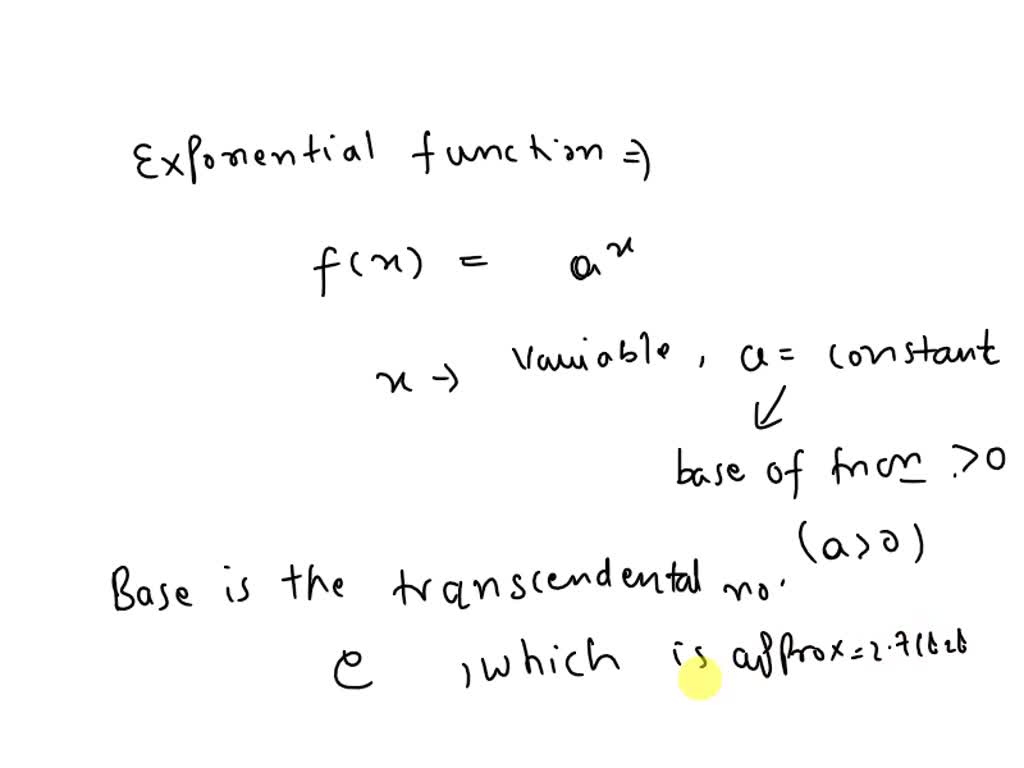 Exponential function ⇒
f(x) = a^x
x → Variable, a = constant
↙
base of fncn > 0
(a > 0)
Base is the transcendental no.
e, which is approx =